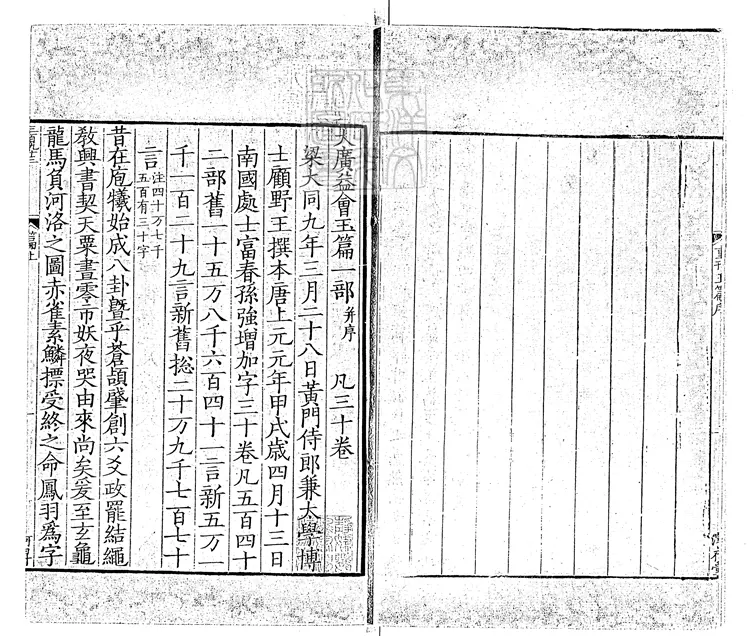 大廣益會玉篇一部并序　凡三十卷
梁大同九年三月二十八日黃門侍郎兼太學博
士顧野王撰本唐上元元年甲戌歲四月十三日
南國處士富春孫強增加字三十卷凡五百四十
二部舊一十五万八千六百四十一言新五万一
千一百二十九言新舊揔二十万九千七百七十
言注四十万七千五百有三十字
昔在庖犧始成八卦曁乎蒼頡肇創六爻政罷結繩
敎興書契天粟晝零市妖夜哭由來尚矣爰至玄龜
龍馬負河洛之圖赤雀素鱗摽受終之命鳳羽爲字